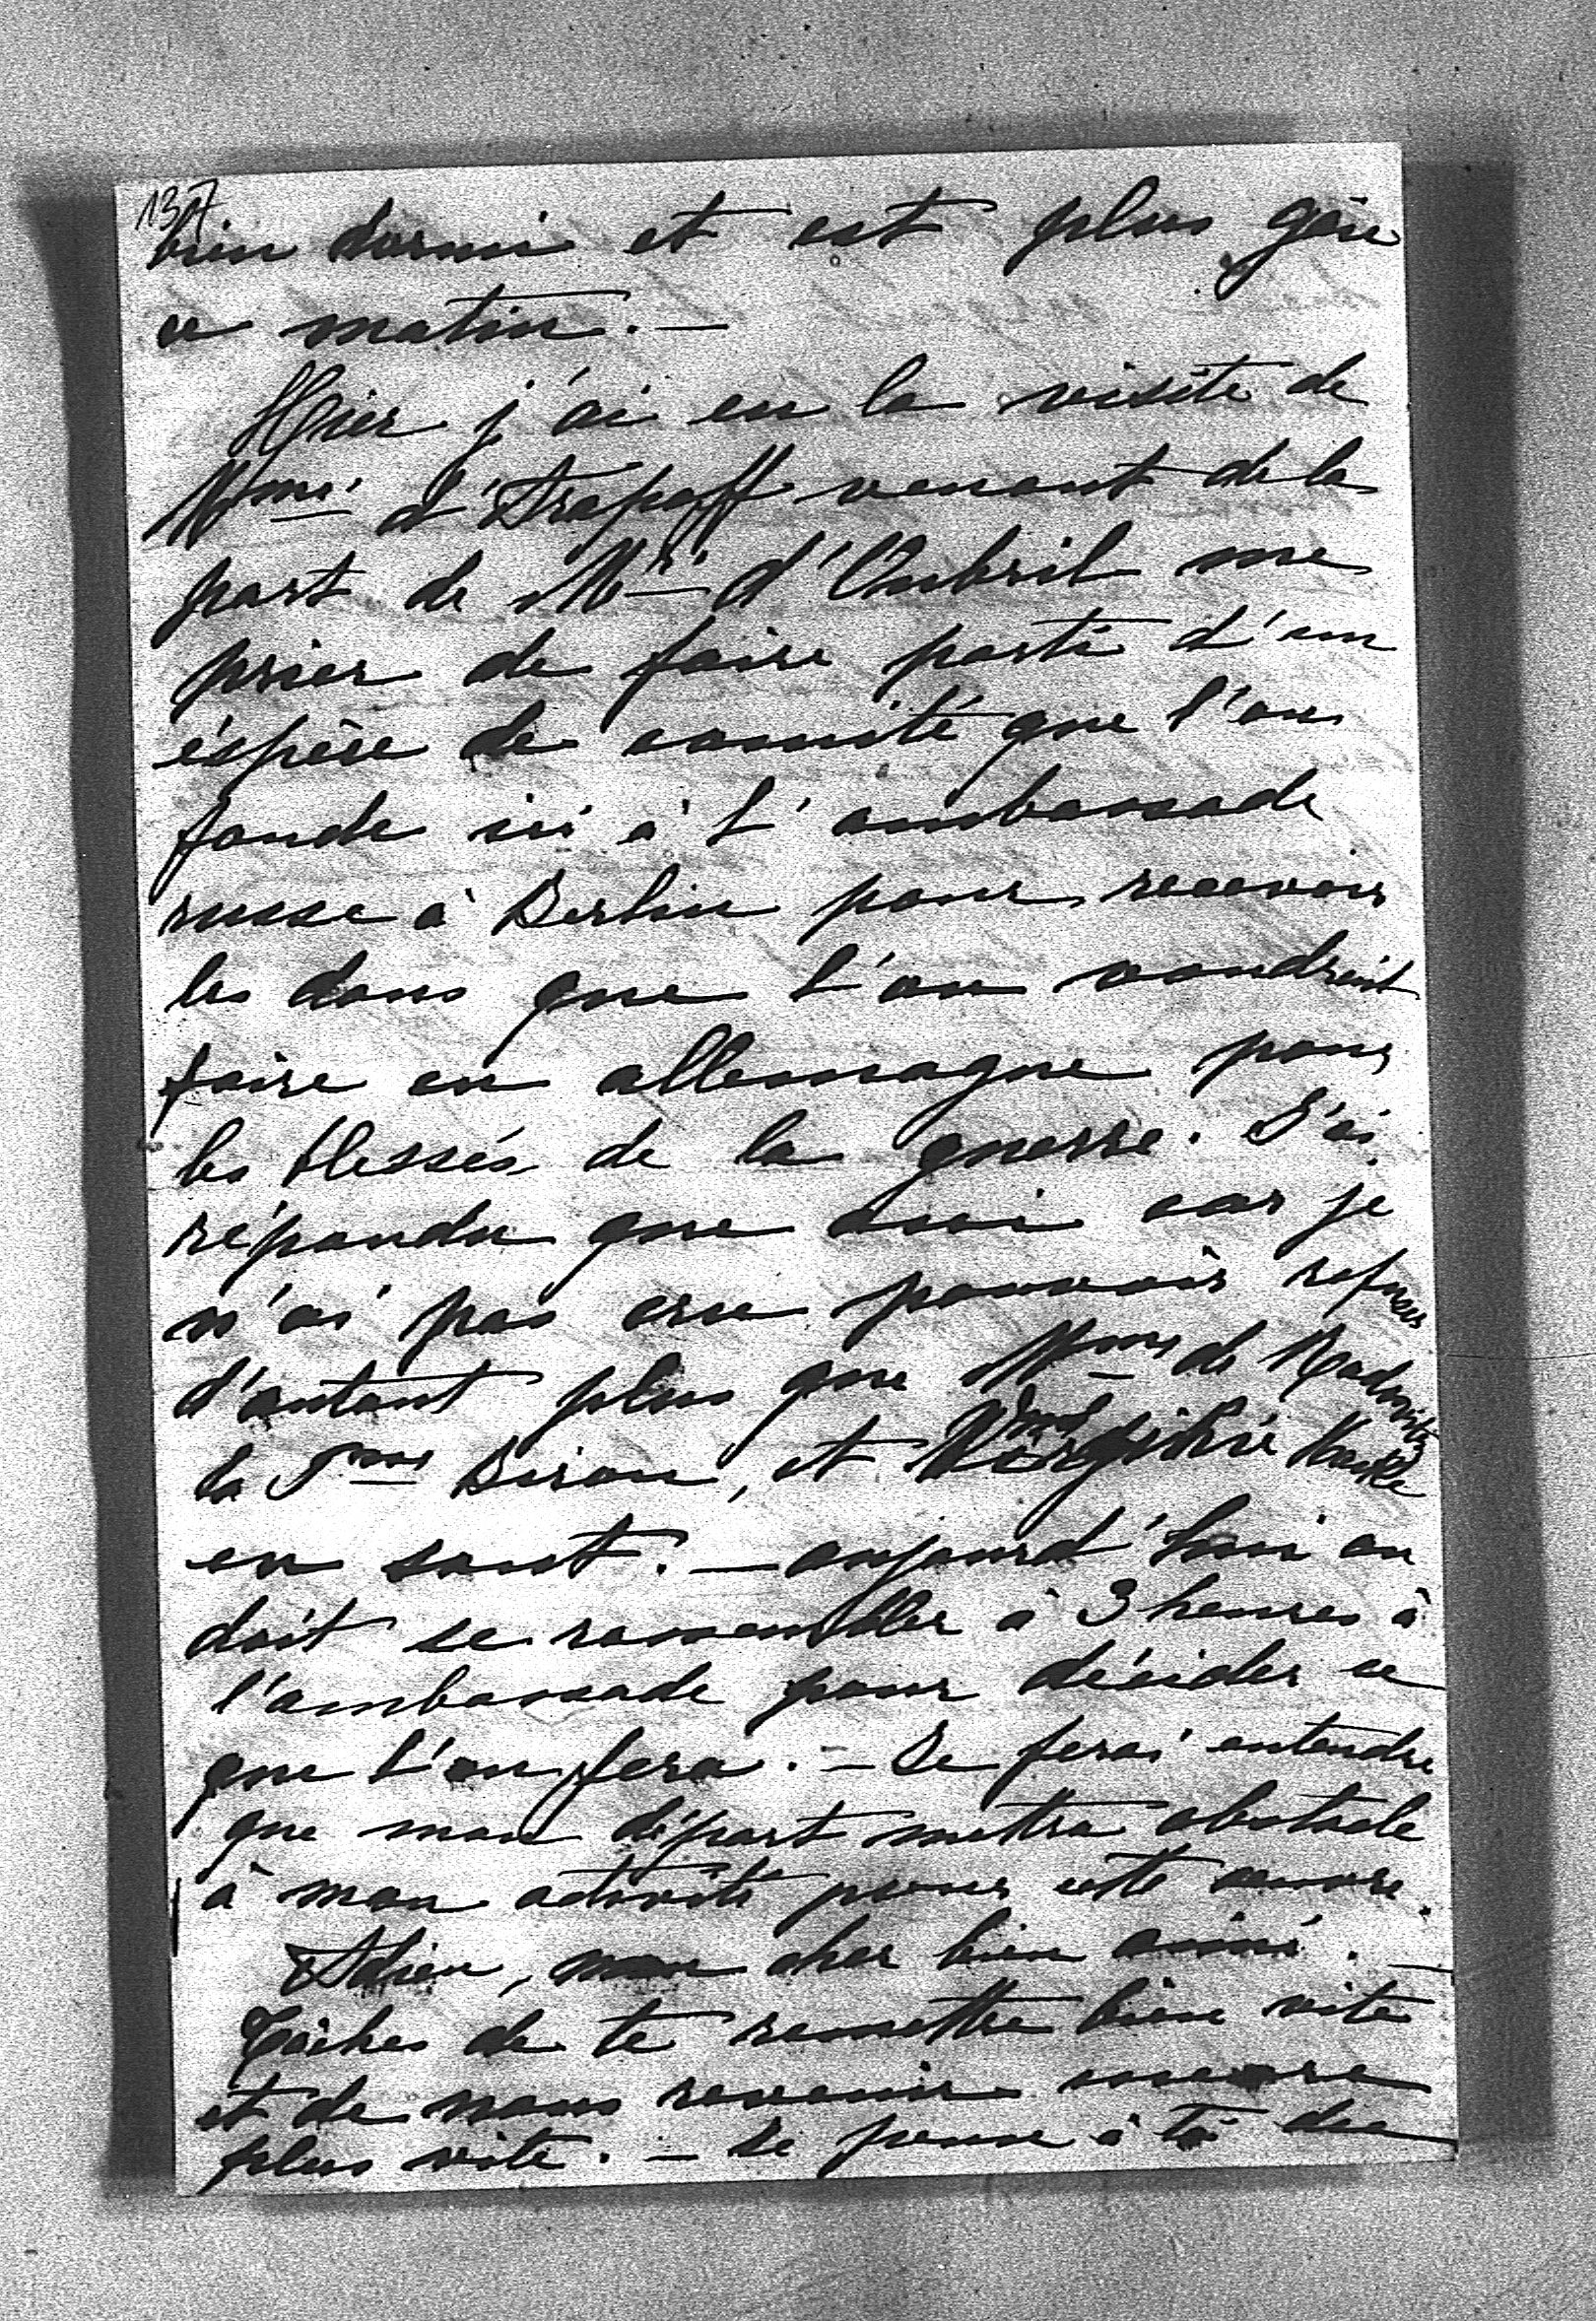 137
bien dormi et est plus gaie
ce matin. —
Hier j'ai eu la visite de
Mme d'Arapoff venant de la
part de Mr d'Oubril me
prier de faire parti d'un
éspèce de comité que l'on
fonde ici à l'ambassade
russe à Berlin pour recevoir
les dons que l'on voudrait
faire en allemagne pour
les blessés de la guerre. J'ai
répondu que oui car je
n'ai pas cru pouvoir refuser
d'autant plus que Mme de Radowitz
la Pme Biron, et
en sont. — aujourd'hui on
doit se rassembler à 3 heures à
l'ambassade pour décider ce
que l'on fera. — Je ferai entendre
que mon départ mettra obstacle
à mon activité pour cette œuvre.
Adieu, mon cher bien aimé. —
Tâches de te remettre bien vite
et de nous revenir encore
plus vite. — Je pense à toi de